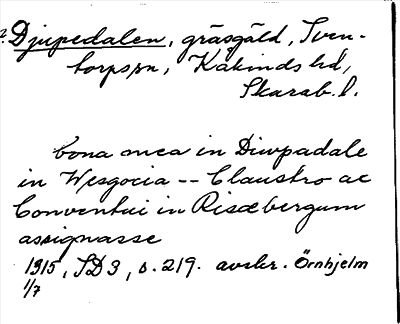 ?. Djupedalen, gräsgäld, Sven-
torpssn, Kåkinds hd,
Skarab. l.
bona mea in Diwpadale
in Wesgocia -- Claustro ac
Conventui in Risæbergum
assignasse
1315, SD 3, s. 219. avskr. Örnhjelm
1/7